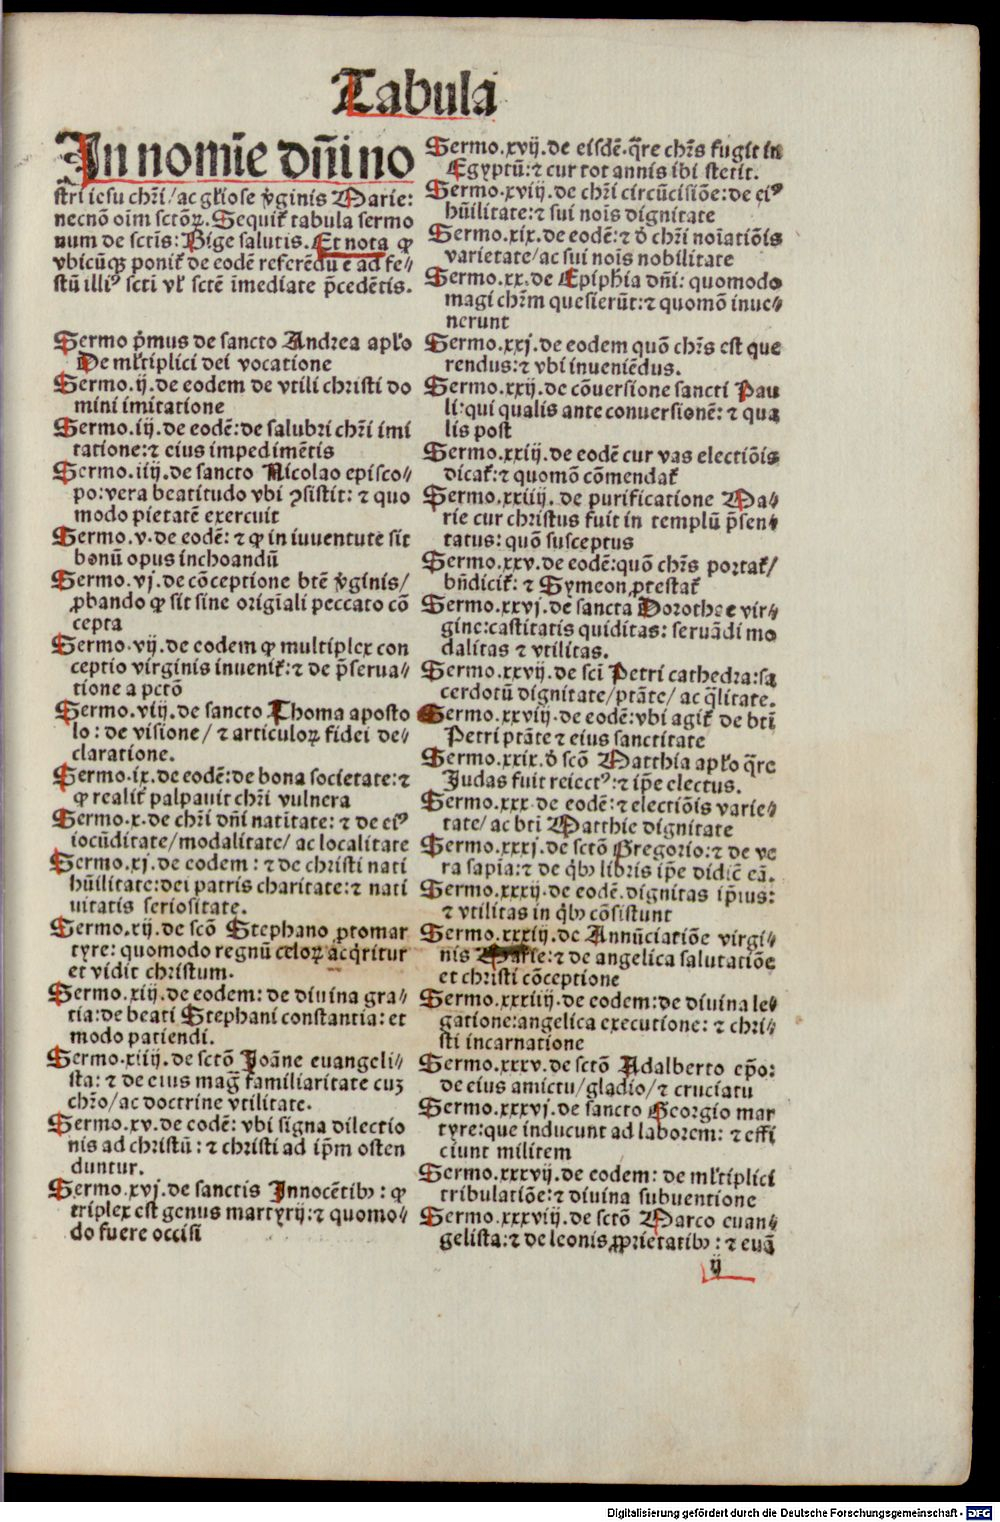 Tabula
In nomīe dn̄i no
stri iesu chr̄i/ac gl̄iose v̄ginis Marie:
necnō oīm sctōꝝ. Sequit᷑ tabula sermo
num de sctīs: Bige salutis. Et nota ꝙ
vbicūqꝫ ponit᷑ de eodē referēdū ē ad fe⸗
stū illiꝰ scti vl̄ sctē īmediate p̄cedētis.
Sermo p̄mus de sancto Andrea apl̄o
De ml̄tiplici dei vocatione
Sermo.ij.de eodem de vtili christi do
mini imitatione
Sermo.iij.de eodē:de salubri chr̄i imi
tatione:⁊ eius impedimētis
Sermo.iiij.de sancto Nicolao episco⸗
po:vera beatitudo vbi ꝯsistit: ⁊ quo
modo pietatē exercuit
Sermo.v.de eodē: ⁊ ꝙ in iuuentute sit
bonū opus inchoandū
Sermo.vj.de cōceptione btē v̄ginis/
ꝓbando ꝙ sit sine origīali peccato cō
cepta
Sermo.vij.de eodem ꝙ multiplex con
ceptio virginis inuenit᷑:⁊ de p̄serua⸗
tione a pctō
Sermo.viij.de sancto Thoma aposto
lo: de visione/ ⁊ articuloꝝ fidei de⸗
claratione.
Sermo.ix.de eodē:de bona societate:⁊
ꝙ realit᷑ palpauit chr̄i vulnera
Sermo.x.de chr̄i dn̄i natītate: ⁊ de eiꝰ
iocūditate/modalitate/ ac localitate
Sermo.xj.de eodem: ⁊ de christi nati
hūilitate:dei patris charitate:⁊ nati
uitatis seriositate.
Sermo.xij.de scō Stephano ꝓtomar
tyre: quomodo regnū celoꝝ acq̄ritur
et vidit christum.
Sermo.xiij.de eodem: de diuina gra⸗
tia:de beati Stephani constantia: et
modo patiendi.
Sermo.xiiij.de sctō Joāne euangeli⸗
sta: ⁊ de eius maḡ familiaritate cuꝫ
chr̄o/ac doctrine vtilitate.
Sermo.xv.de eodē: vbi signa dilectio
nis ad christū: ⁊ christi ad ip̄m osten
duntur.
Sermo.xvj.de sanctis Innocētibꝰ: ꝙ
triplex est genus martyrij:⁊ quomo⸗
do fuere occisi
Sermo.xvij.de eisdē.q̄re chr̄s fugit in
Egyptū:⁊ cur tot annis ibi stetit.
Sermo.xviij.de chr̄i circūcisiōe:de eiꝰ
hūilitate:⁊ sui nōis dignitate
Sermo.xix.de eodē:⁊ d̄ chr̄i noīatiōis
varietate/ac sui nōis nobilitate
Sermo.xx.de Epiphīa dn̄i: quomodo
magi chr̄m quesierūt:⁊ quomō inue⸗
nerunt
Sermo.xxj.de eodem quō chr̄s est que
rendus:⁊ vbi inueniēdus.
Sermo.xxij.de cōuersione sancti Pau
li:qui qualis ante conuersionē: ⁊ qua
lis post
Sermo.xxiij.de eodē cur vas electiōis
dicat᷑:⁊ quomō cōmendat᷑
Sermo.xxiiij. de purificatione Ma⸗
rie cur christus fuit in templū p̄sen⸗
tatus: quō susceptus
Sermo.xxv.de eodē:quō chr̄s portat᷑/
bn̄dicit᷑: ⁊ Symeon ꝓtestat᷑
Sermo.xxvj.de sancta Dorothee vir⸗
gine:castitatis quiditas: seruādi mo
dalitas ⁊ vtilitas.
Sermo.xxvij.de scī Petri cathedra:sa
cerdotū dignitate/ptāte/ ac q̄litate.
Sermo.xxviij.de eodē:vbi agit᷑ de btī
Petri ptāte ⁊ eius sanctitate
Sermo.xxix.d̄ scō Matthia apl̄o q̄re
Judas fuit reiectꝰ:⁊ ip̄e electus.
Sermo.xxx.de eodē:⁊ electiōis varie⸗
tate/ac btī Matthie dignitate
Sermo.xxxj.de sctō Gregorio:⁊ de ve
ra sapīa:⁊ de q̄bꝰ libris ip̄e didicē eā.
Sermo.xxxij.de eodē.dignitas ip̄ius:
⁊ vtilitas in q̄bꝰ cōsistunt
Sermo.xxxiij.de Annūciatiōe virgi⸗
nis Marie:⁊ de angelica salutatiōe
et christi cōceptione
Sermo.xxxiiij.de eodem:de diuina le⸗
gatione:angelica executione: ⁊ chri⸗
sti incarnatione
Sermo.xxxv.de sctō Adalberto ep̄o:
de eius amictu/gladio/⁊ cruciatu
Sermo.xxxvj.de sancto Georgio mar
tyre:que inducunt ad laborem: ⁊ effi
ciunt militem
Sermo.xxxvij.de eodem: de ml̄tiplici
tribulatiōe:⁊ diuina subuentione
Sermo.xxxviij.de sctō Marco euan⸗
gelista:⁊ de leonis ꝓprietatibꝰ: ⁊ euā
ij
Digitalisierung gefördert durch die Deutsche Forschungsgemeinschaft - DFG